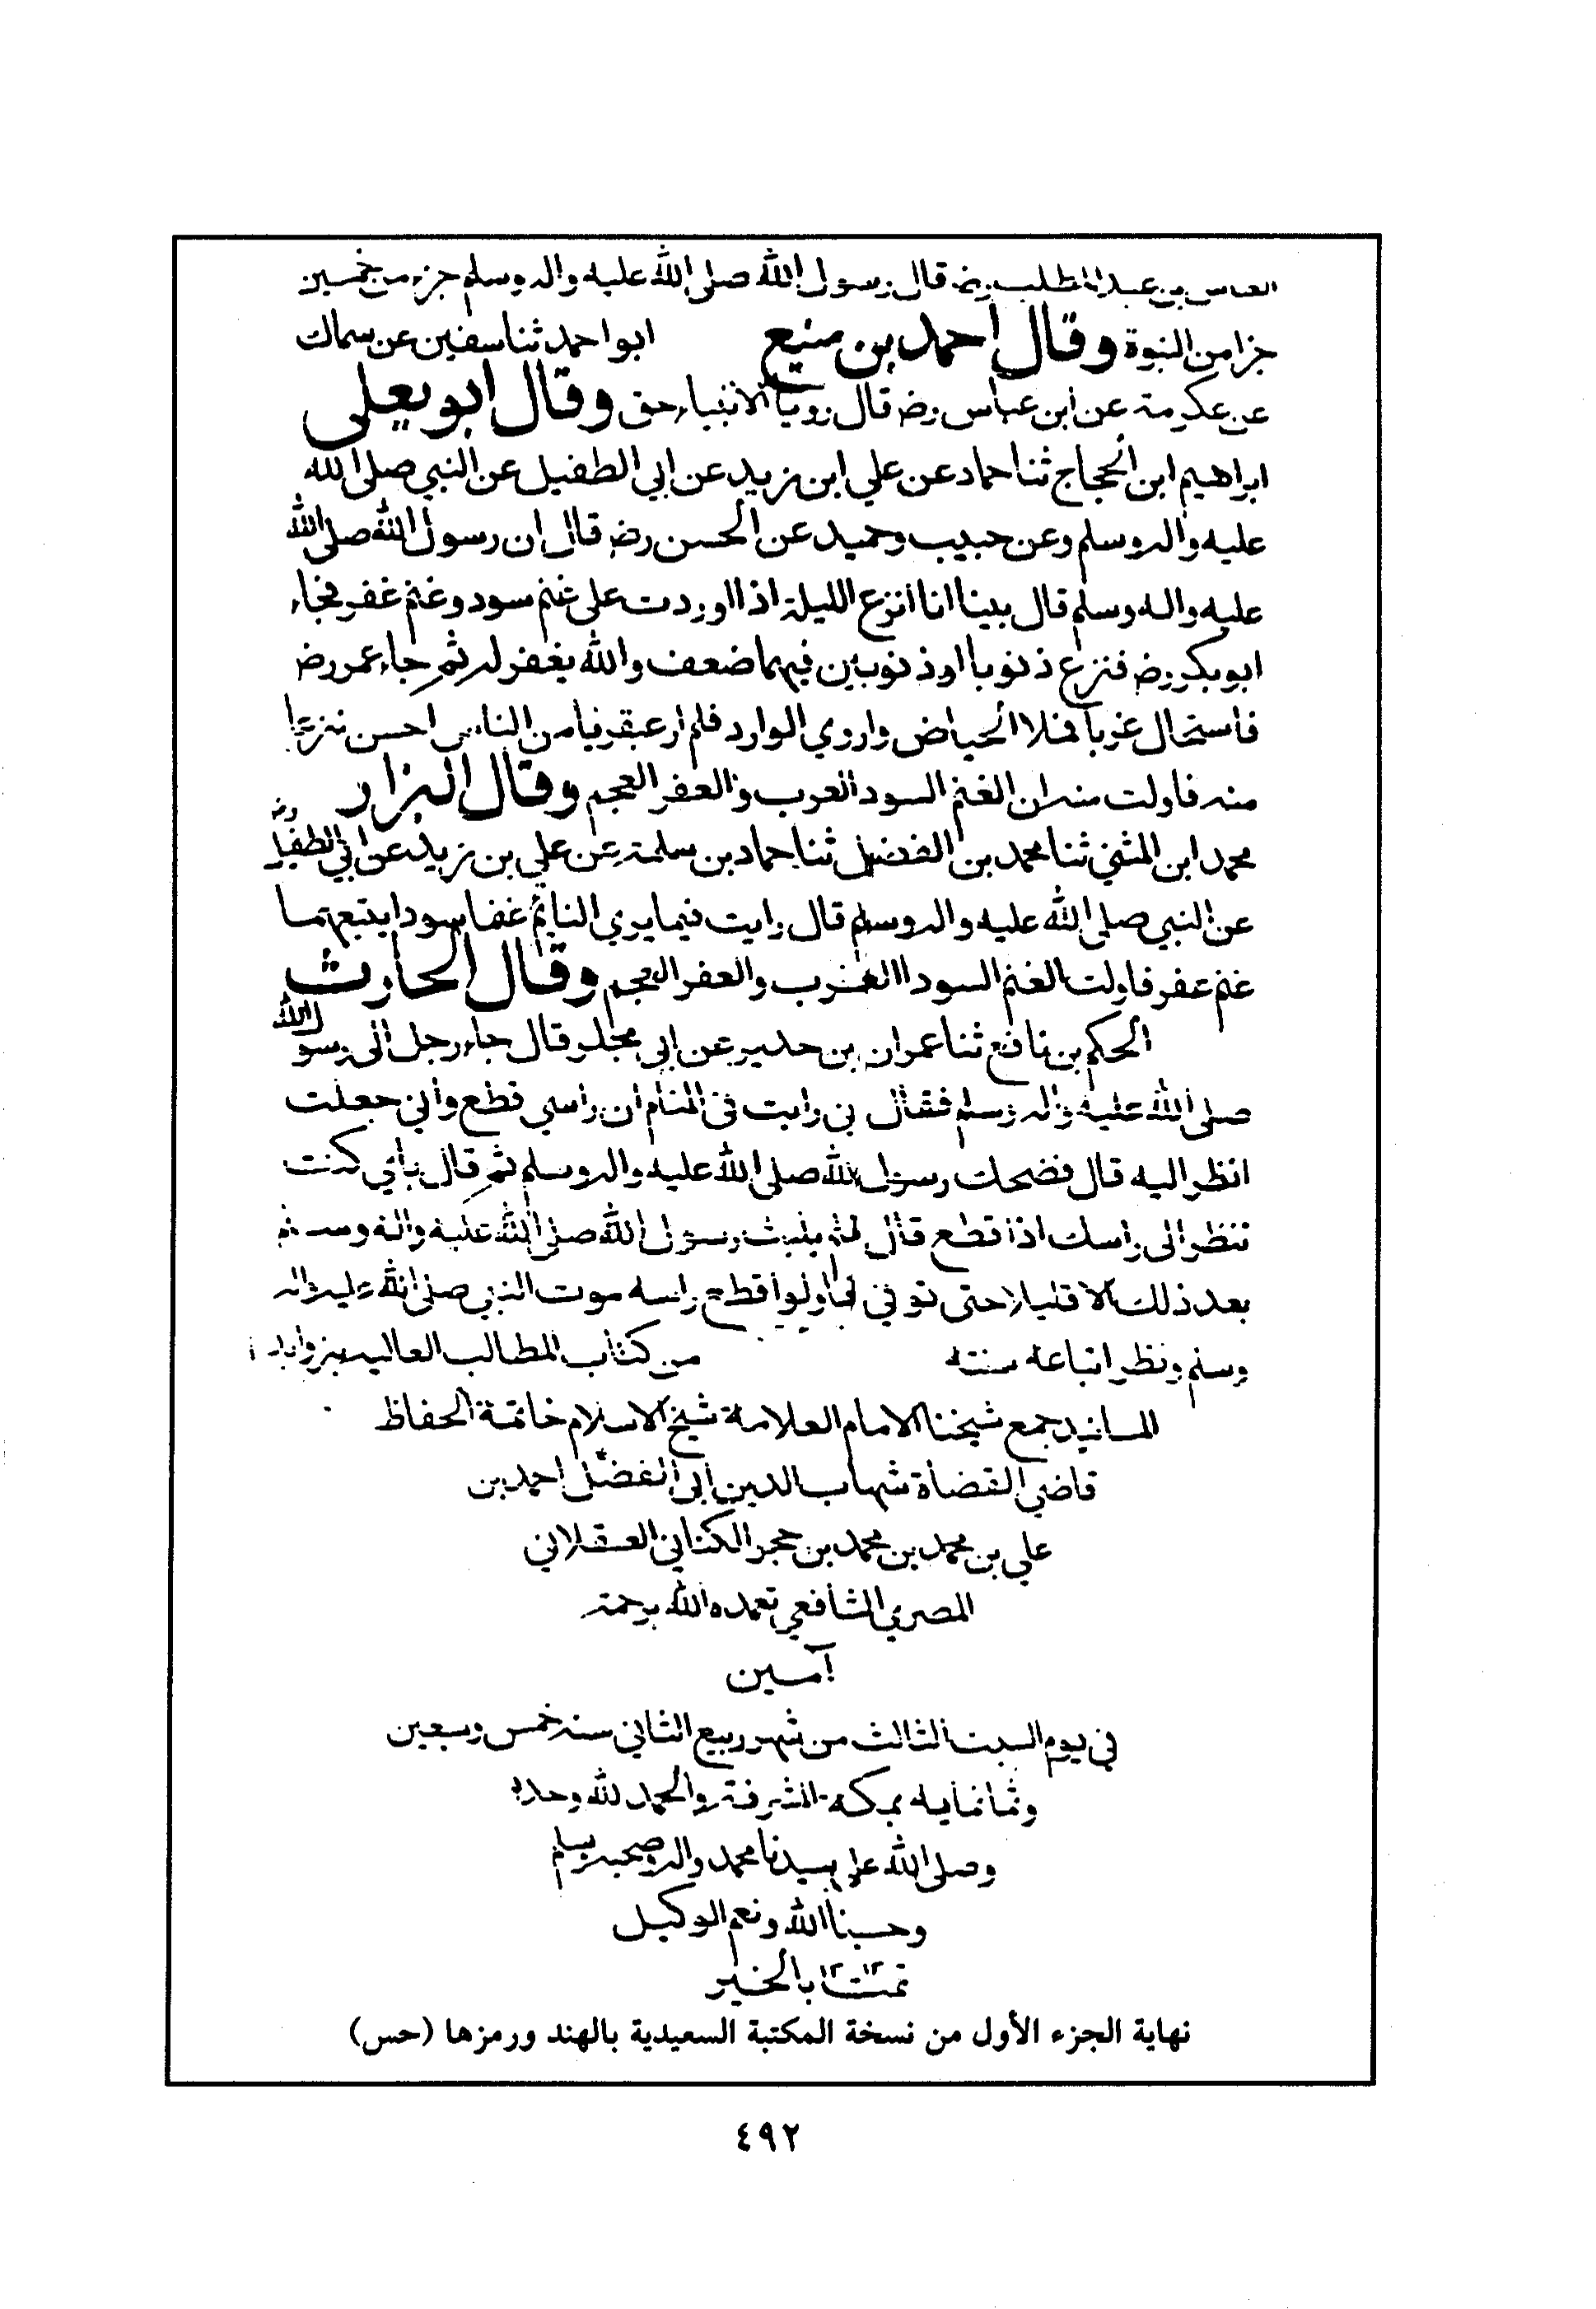 العباس بن عبد المطلب رضـ قال رسول الله صلى الله عليه واله وسلم جزء من خمسين
جزا من النبوة وقال احمد بن منيع ابو احمد ثنا سفين عن سماك
عن عكرمة عن ابن عباس رضـ قال رويا الانبياء حق وقال ابو يعلى
ابراهيم ابن الحجاج ثنا حماد عن علي ابن زيد عن ابي الطفيل عن النبي صلى الله
عليه واله وسلم وعن حبيب وحميد عن الحسن رضـ قال ان رسول الله صلى الله
عليه واله وسلم قال بينا انا انزع الليلة اذا اوردت على غنم سود وغنم عفر فجاء
ابو بكر رضـ فنزع ذنوبا او ذنوبين فيهما ضعف والله يغفر له ثم جاء عمر رضـ
فاستحال غربا فملا الحياض واروي الوارد فلم ار عبقريا من الناس احسن نزعا
منه فاولت منه ان الغنم السود العرب والعفر العجم وقال البزار
محمد ابن المثنى ثنا محمد بن الفضيل ثنا حماد بن سلمة عن علي بن زيد عن ابي الطفيل رضـ
عن النبي صلى الله عليه واله وسلم قال رايت فيما يري النايم غنما سودا يتبعها
غنم عفر فاولت الغنم السود العرب والعفر العجم وقال الحارث
الحكم بن نافع ثنا عمران بن حدير عن ابي مجلز قال جاء رجل الى رسول الله
صلى الله عليه واله وسلم فقال ني رايت في المنام ان راسي قطع واني جعلت
انظر اليه قال فضحك رسول الله صلى الله عليه واله وسلم ثم قال باي كنت
تنظر الى راسك اذا قطع قال لم يلبث رسول الله صلى الله عليه واله وسلم
بعد ذلك الا قليلا حتى توفي فاولوا قطع راسه موت النبي صلى الله عليه واله
وسلم ونظر اتباعه سنته من كتاب المطالب العاليه بزوايد
المسانيد جمع شيخنا الامام العلامة شيخ الاسلام خاتمة الحفاظ
قاضي القضاة شهاب الدين ابي الفضل احمد بن
علي بن محمد بن محمد بن حجر الكناني العسقلاني
المصري الشافعي تغمده الله برحمته
آمين
في يوم السبت الثالث من شهر ربيع الثاني سنه خمس وسبعين
وثمانمايه بمكه المشرفة والحمد لله وحده
وصلى الله على سيدنا محمد واله وصحبه وسلم
وحسبنا الله ونعم الوكيل
تمت بالخير
نهاية الجزء الأول من نسخة المكتبة السعيدية بالهند ورمزها (حس)
٤٩٢